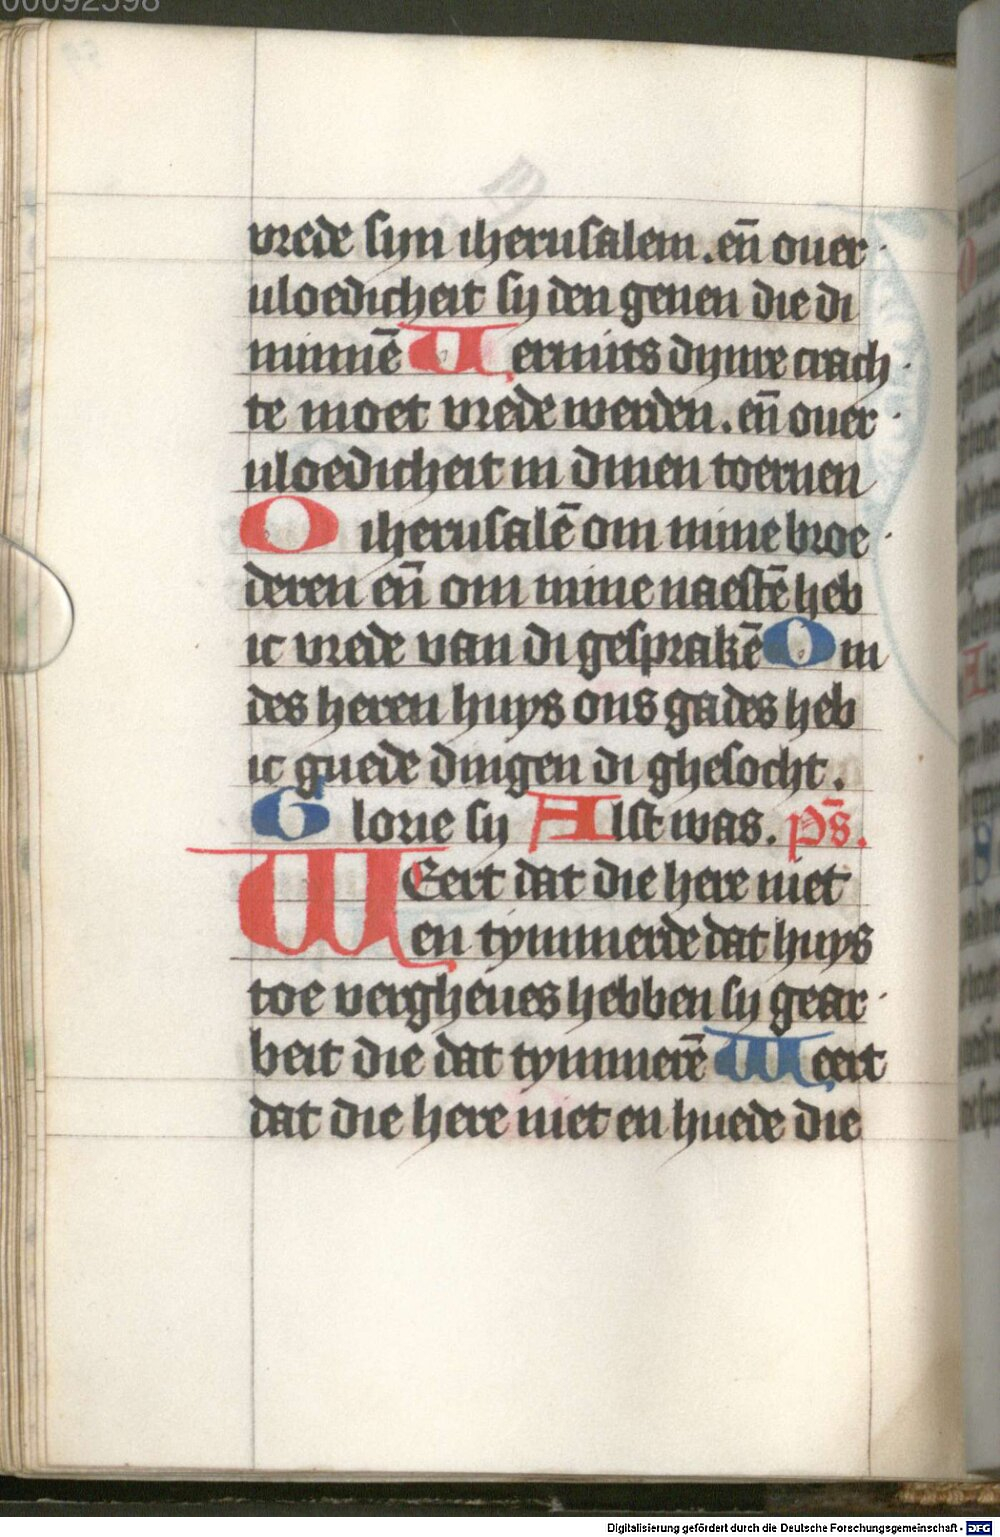 00092598
vrede sijn iherusalem. en̄ ouer
uloedicheit sij den genen die di
minnē Uermits dijnre crach
te moet vrede werden. en̄ ouer
uloedicheit in dinen toernen
O iherusalē om mine broe
deren en̄ om mine naestē heb
ic vrede van di gesprakē Om
des heren huys ons gades heb
ic guede dingen di ghesocht.
Glorie sij Alst was. ps̄.
WEert dat die here niet
en tymmerde dat huys
toe vergheues hebben sij gear
beit die dat tymmerē Weert
dat die here niet en huede die
Digitalisierung gefördert durch die Deutsche Forschungsgemeinschaft - DFG